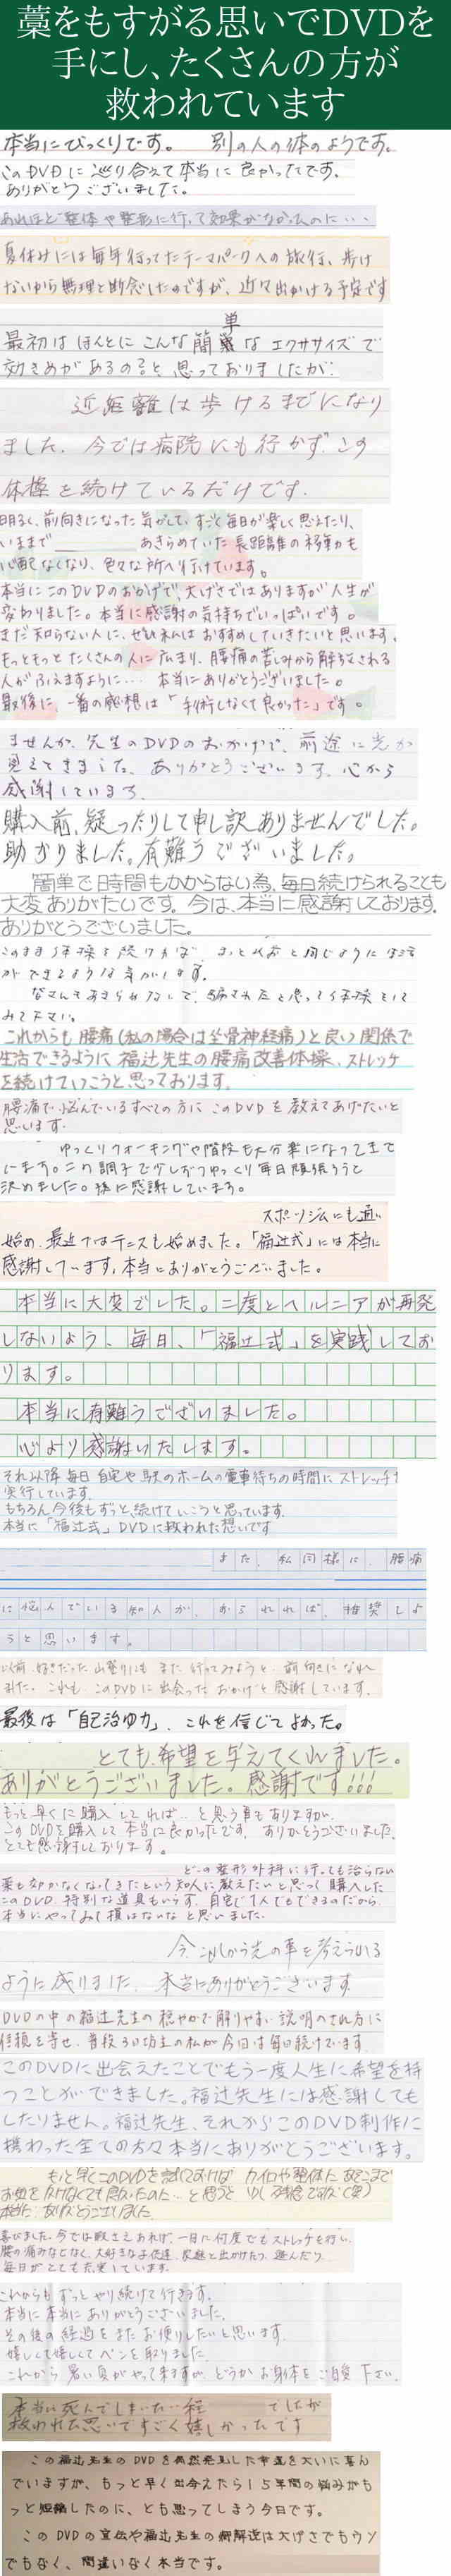 藁をもすがる思いでDVDを
手にし、たくさんの方が
救われています
本当にびっくりです。 別の人の体のようです。
このDVDに巡り合えて本当に良かったです。
ありがとうございました。
あれほど整体や整形に行って効果がなかったのに・・・
夏休みには毎年行ってたテーマパークへの旅行、歩け
ないから無理と断念したのですが、近々出かける予定です
最初はほんとにこんな簡単なエクササイズで
効きめがあるの?と思っておりましたが、
近距離は歩けるまでになり
ました。今では病院にも行かず、この
体操を続けているだけです。
明るく、前向きになった気がして、すごく毎日が楽しく思えたり、
いままで あきらめていた長距離の移動も
心配なくなり、色々な所へ行けています。
本当にこのDVDのおかげで、大げさではありますが人生が
変わりました。本当に感謝の気持ちでいっぱいです。
まだ知らない人に、ぜひ私はおすすめしていきたいと思います。
もっともっとたくさんの人に広まり、腰痛の苦しみから解放される
人がふえますように・・・ 本当にありがとうございました。
最後に、一番の感想は「手術しなくて良かった」です。
ませんが、先生のDVDのおかげで、前途に光が
見えてきました。ありがとうございます。心から
感謝しています。
購入前、疑ったりして申し訳ありませんでした。
助かりました。有難うございました。
簡単で時間もかからない為、毎日続けられることも
大変ありがたいです。今は、本当に感謝しております。
ありがとうございました。
このまま体操を続ければ、きっと以前と同じように生活
ができるような気がします。
皆さんもあきらめないで、騙されたと思って体操をして
みて下さい。
これからも腰痛(私の場合は坐骨神経痛)と良い関係で
生活できるように福辻先生の腰痛改善体操、ストレッチ
を続けていこうと思っております。
腰痛で悩んでいるすべての方にこのDVDを教えてあげたいと
思います。
ゆっくりウォーキングや階段も大分楽になってきて
います。この調子で少しずつゆっくり毎日頑張ろうと
決めました。様に感謝しています。
スポーツジムにも通い
始め、最近ではテニスも始めました。「福辻式」には本当に
感謝しています。本当にありがとうございました。
本当に大変でした。二度とヘルニアが再発
しないよう、毎日、「福辻式」を実践してお
ります。
本当に有難うございました。
心より感謝いたします。
それ以降毎日自宅や駅のホームの電車待ちの時間にストレッチを
実行しています。
もちろん今後もずっと続けていこうと思っています。
本当に「福辻式」DVDに救われた想いです
また、私同様に、腰痛
に悩んでいる知人が、おられれば、推奨しよ
うと思います。
以前好きだった山登りにもまた行ってみようと、前向きになれ
ました。これも、このDVDに出会ったおかげと感謝しています。
最後は「自己治ゆ力」、これを信じてよかった。
とても、希望を与えてくれました。
ありがとうございました。感謝です!!!
もっと早くに購入してれば…と思う事もありますが、
このDVDを購入して本当に良かったです。ありがとうございました。
とても感謝しております。
どこの整形外科に行っても治らない
薬も効かなくなってきたという知人に教えたいと思って購入した
このDVD。特別な道具もいらず、自宅で1人でもできるのだから、
本当にやってみて損はないなと思いました。
今、これから先の事を考えられる
ように成りました。本当にありがとうございます。
DVDの中の福辻先生の穏やかで解りやすい説明のされ方に
信頼を寄せ、普段3日坊主の私が今日は毎日続けています
このDVDに出会えたことでもう一度人生に希望を持
つことができました。福辻先生には感謝しても
したりません。福辻先生、それからこのDVD制作に
携わった全ての方々本当にありがとうございます。
もっと早くこのDVDを試しておけば カイロや整体にあそこまで
お金をかけなくても良かったのに…と思うと 少し残念ですが(笑)
本当に、ありがとうございました。
喜びました。今では暇さえあれば、一日に何度でもストレッチを行い、
腰の痛みなどなく、大好きな子供達、家族と出かけたり、遊んだり、
毎日がとても充実しています。
これからもずっとやり続けて行きます。
本当に本当にありがとうございました。
その後の経過をまたお便りしたいと思います。
嬉しくて嬉しくてペンを取りました。
これから暑い夏がやって来ますが、どうかお身体をご自愛下さい。
本当に死んでしまいたい程 でしたが
救われた思いですごく嬉しかったです
この福辻先生のDVDを偶然発見した幸運を大いに喜ん
でいますが、もっと早く出会えたら15年間の悩みがも
っと短縮したのに、とも思ってしまう今日です。
このDVDの宣伝や福辻先生の解説は大げさでもウソ
でもなく、間違いなく本当です。